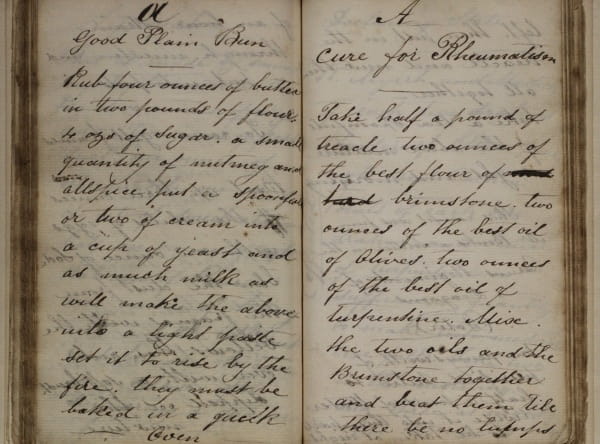 a
Good Plain Bun
Rub four ounces of butter
in two pounds of flour.
4 ozs of Sugar. a small
quantity of nutmeg and
allspice put a spoonful
or two of cream into
a cup of yeast and
as much milk as
will make the above
into a light paste
set it to rise by the
fire. they must be
baked in a quick
Oven
A
cure for Rheumatism
Take half a pound of
treacle. two ounces of
the best flour of
brimstone. two
ounces of the best oil
of Olives. two ounces
of the best oil of
turpentine. Mix.
the two oils and the
Brimstone together
and beat them till
there be no lumps